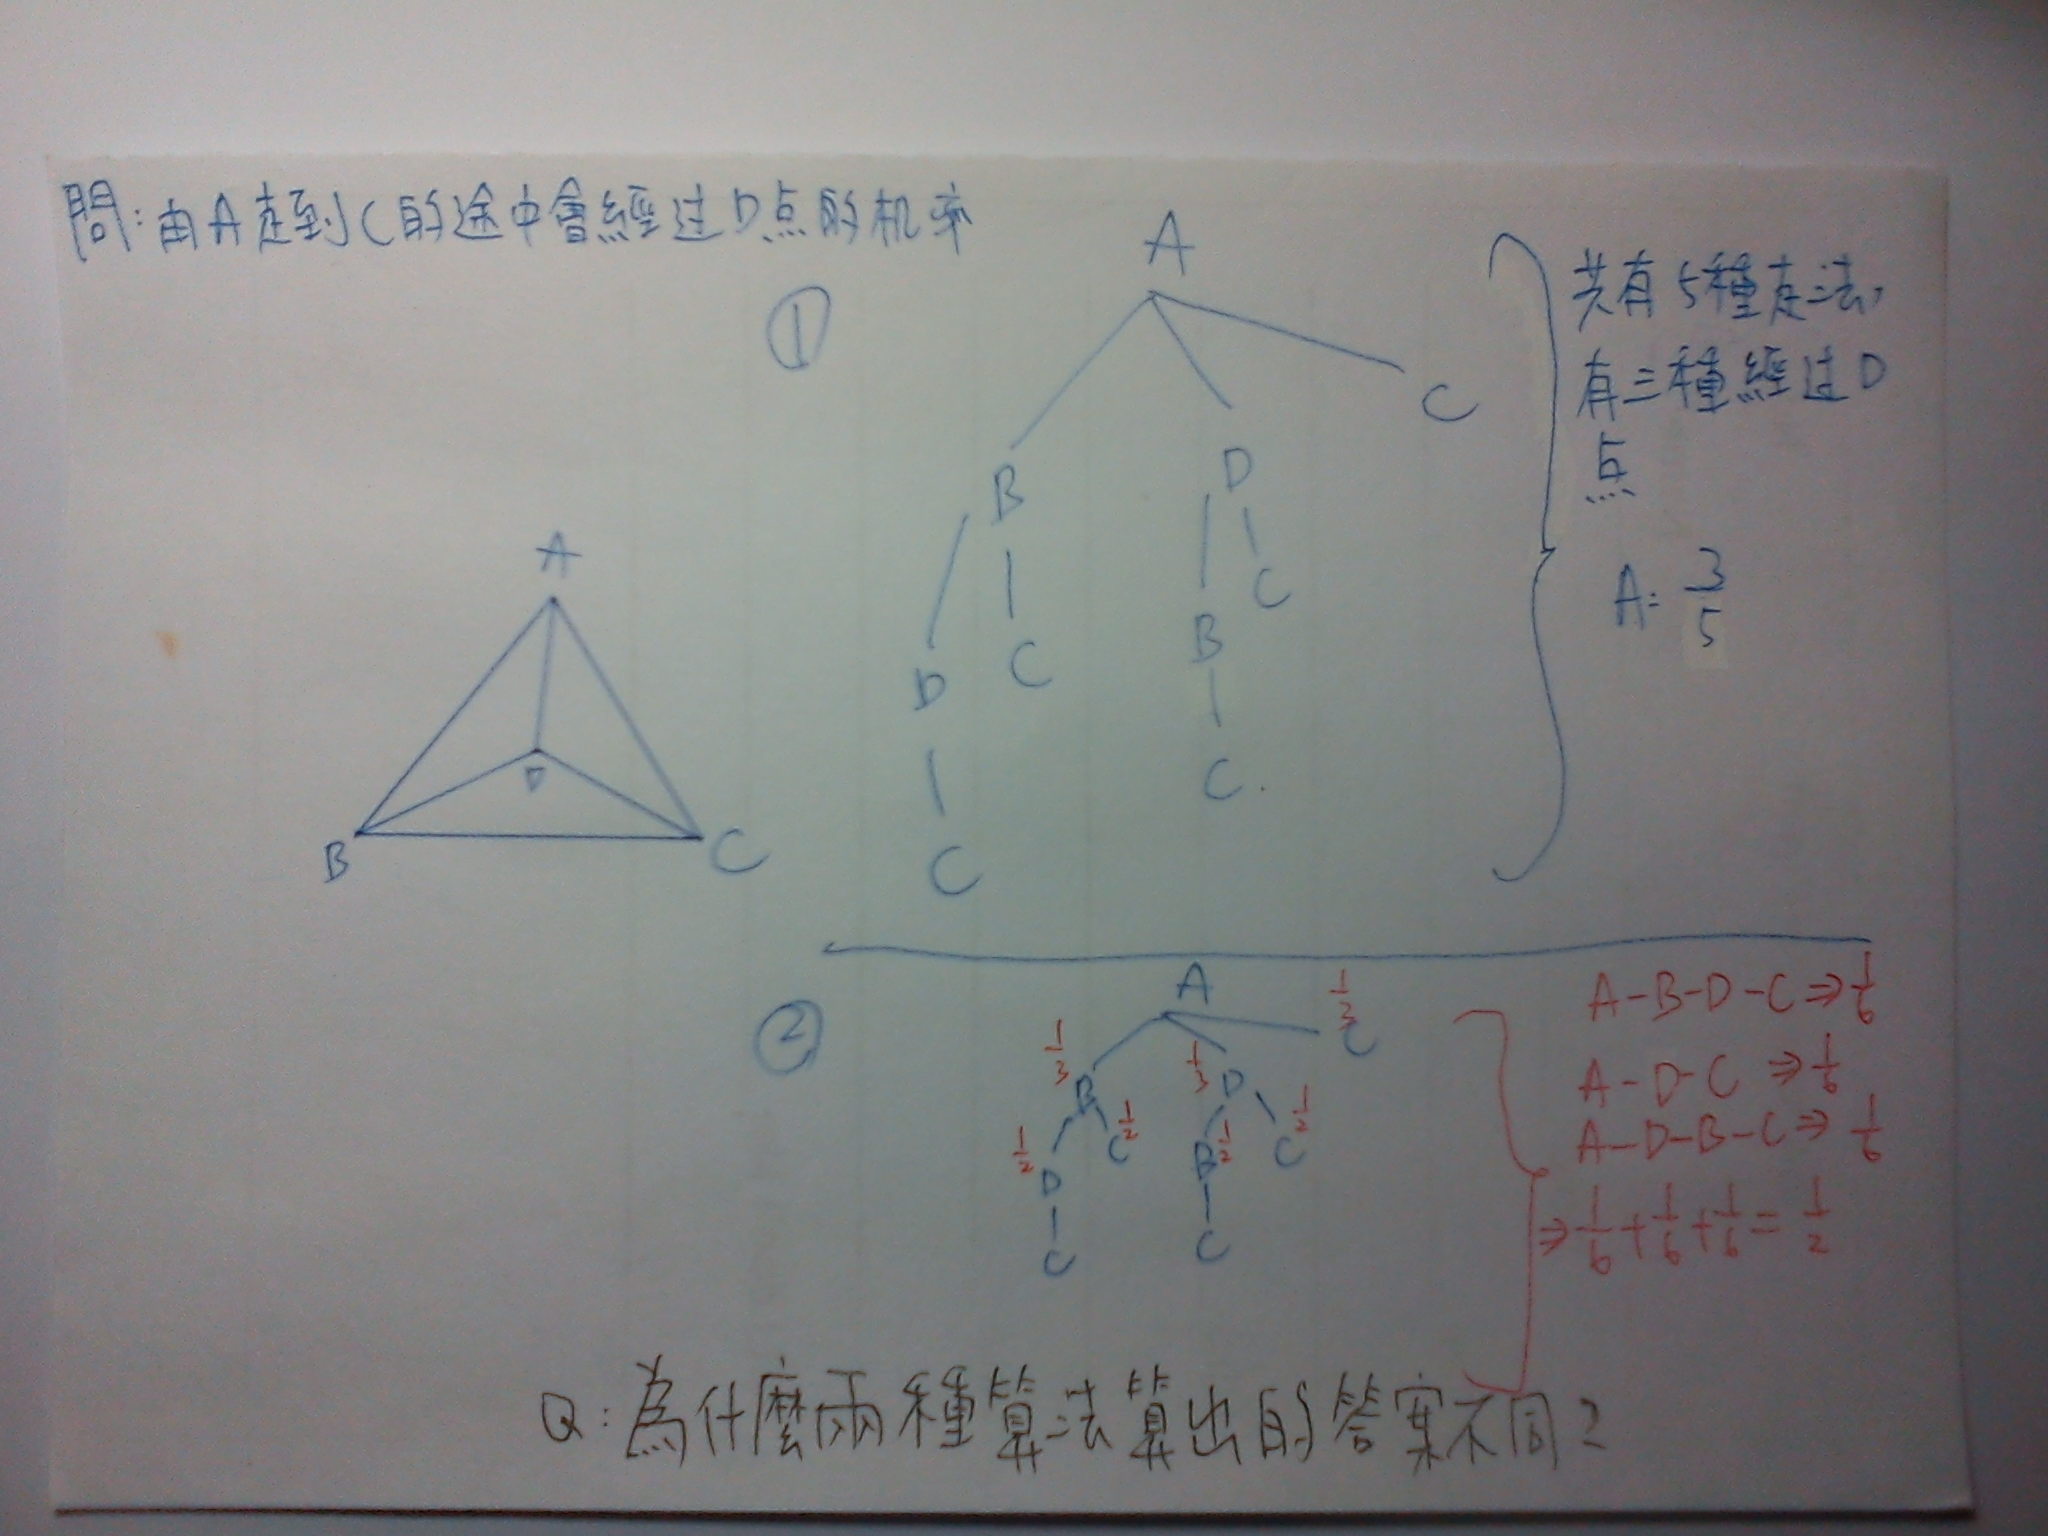 問:由A走到C的途中會經过D点的机率
①
A
B
D
C
D
C
B
C
C
C
共有5種走法,
有三種經过D
点
A= 3/5
A
D
B
C
②
A
1/3
B
1/3
D
1/3
C
1/2
D
1/2
C
1/2
B
1/2
C
C
C
A-B-D-C⇒1/6
A-D-C ⇒1/6
A-D-B-C⇒1/6
⇒1/6+1/6+1/6=1/2
Q:為什麼兩種算法算出的答案不同?